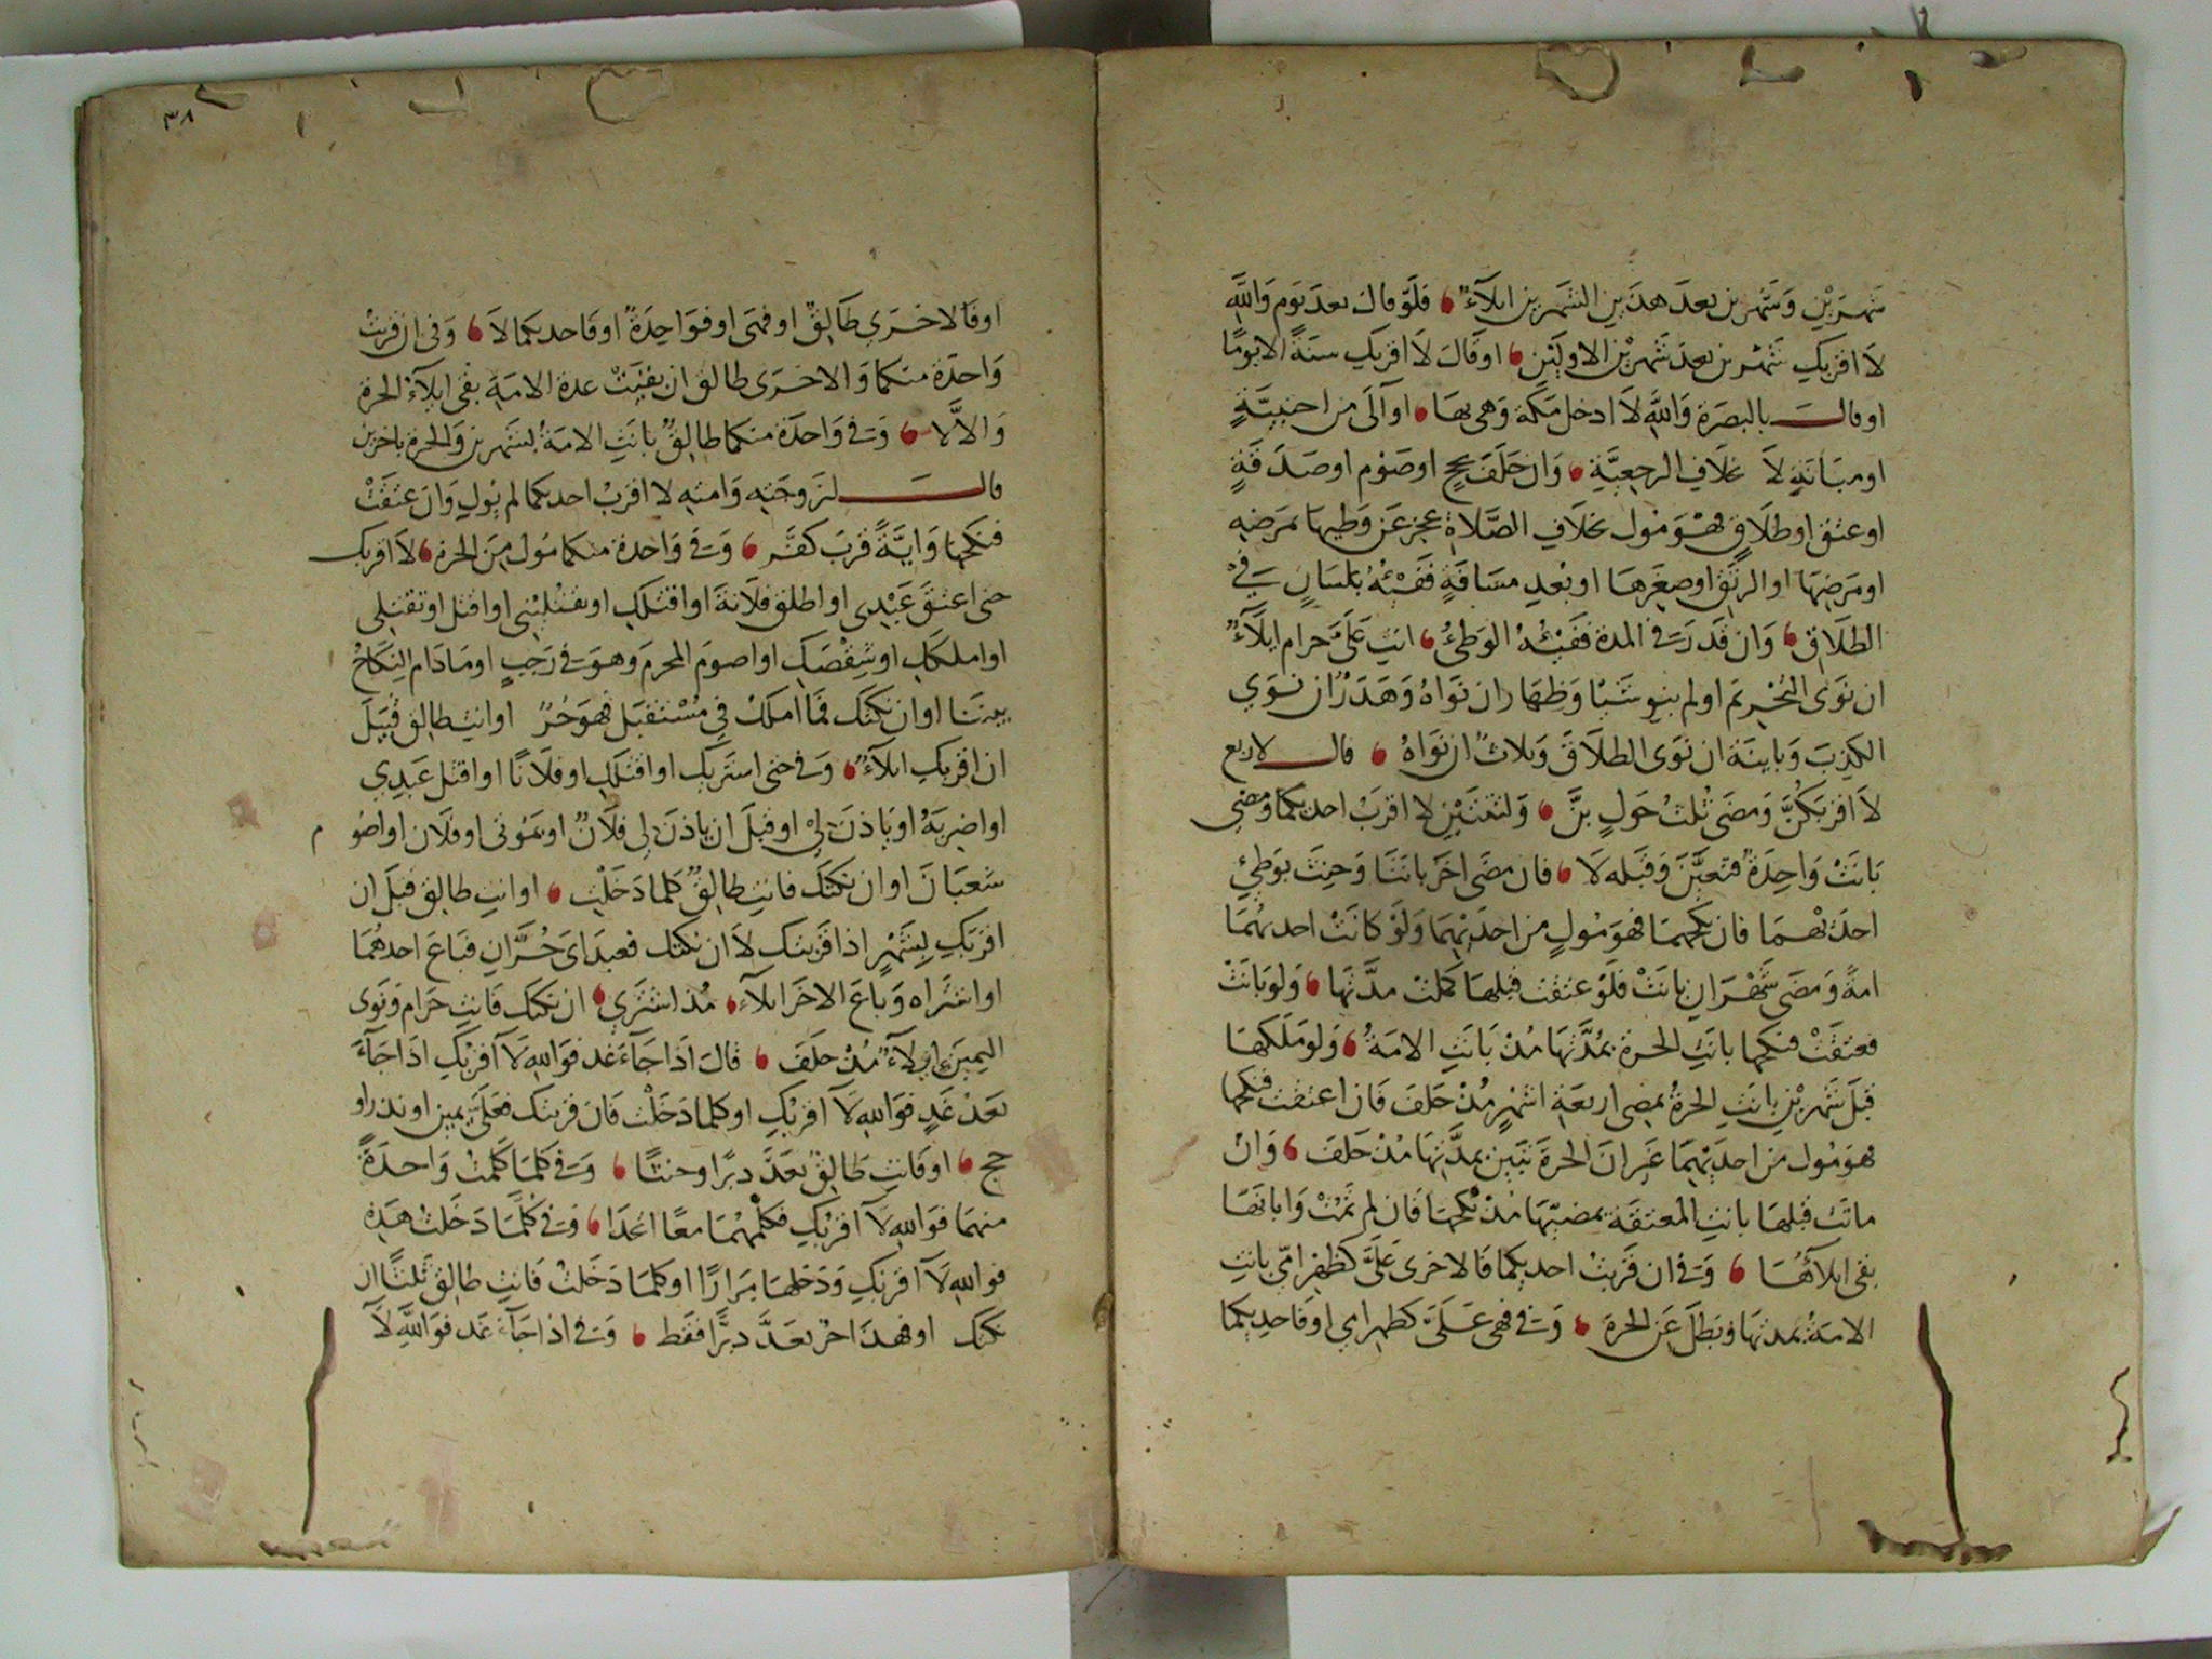 شَهرَيْنِ وَشَهرين بعدَ هذَينِ الشهرين ايلآءٌ فلَو قال بعدَ يَوم وَاللَّهِ
لاَ اقربكِ شَهرين بعدَ شهرَيْن الاولَيْنِ اوقالَ لاَ اقربكِ سنةً الا يومًا
اوقال بالبصَرة وَاللَّهِ لاَ ادخل مَكّة وَهى بهَا اوآلَى من اجنبيَّةٍ
اومبَانَةٍ لاَ بخلاَفِ الرجعِيَّةِ وَان حَلَفَ بحجٍّ اوصَوْم اوصَدَقَةٍ
اوعتق اوطلاَقٍ فهْوَ مُول بخلاَفِ الصَّلاةِ عجز عَن وَطيهَا بمَرَضِهِ
اومَرَضِهَا اوالرتَقِ اوصِغَرهَا اوبُعدِ مسَافَةٍ فَفَيْئُهُ بلسَانٍ وَفى
الطلاَقِ وَان قَدرَ فى المدة فَفَيْئهُ الوَطئُ انتِ عَلَىَّ حرام ايلآءٌ
ان نَوَى التحْريمَ اولم ينوِ شَيْئا وَظِهَار ان نَوَاهُ وَهَدَرٌ ان نوَى
الكذِبَ وَباينَة ان نَوَى الطلاَقَ وَثلاثٌ ان نَوَاهُ قال لاربع
لاَ اقربَكُنَّ وَمضَى ثلثُ حَولٍ بنَّ وَلثنتَيْنِ لا اقرَبُ احديكمَا وَمضى
بَانَتْ وَاحِدَةٌ فتعيَّنَ وَقَبله لاَ فان مضَى اخَر بانَتَا وَحِنثَ بوَطئِ
احدَيهمَا فان نكحهمَا فهوَ مُولٍ من احدَيْهمَا وَلَوْ كانَتْ احديهُمَا
امةً وَمضَى شَهْرَانِ بانَتْ فلَوْ عتقت قبلهَا كملت مدَّتهَا وَلوبانَتْ
فعتقَتْ فنكحها بانَتِ الحرة بمُدَّتهَا مُذْ بَانَتِ الامَةُ وَلومَلَكهَا
قَبلَ شَهرَيْنِ بانَتِ الحرةُ بمضى اربعَةِ اشهُرٍ مُذْ حَلفَ فَان اعتقت فنكحها
فهوَ مُول من احدَيْهِمَا غَير انَ الحرةَ تبَين بمدَّتهَا مُذ حَلفَ وَانْ
ماتَت قبلهَا بانتِ المعتقَة بمضيّهَا مُذْ نكحهَا فَان لم تمُتْ وَابانَهَا
بقى ايلآؤُهَا وَفى ان قرَبتُ احديكمَا فَالاخرى عَلىَّ كظهْرِ امّى بانتِ
الامَةُ بمدتهَا وَبطلَ عَن الحرة وَفى فهى عَلَىَّ كظهر امى اوفَاحديكمَا
اوفَالاخرَى طَالِقٌ اوفهى اوفوَاحِدَةٌ اوفَاحديكمَا لاَ وَفى ان قربْتُ
وَاحدَة منكمَا وَالاخرَى طالق ان بقيَتْ عدة الامَةِ بقى ايلآءُ الحرة
وَالاَّ لا وَفى وَاحدَة منكمَا طالِقٌ بانَتِ الامَةُ بشَهرين وَالحرة باخرَين
قال لزوجَتِهِ وَامتِهِ لا اقرَبُ احديكما لم يُولِ وَان عتَقَتْ
فنكحَهَا وَايَّةً قرَبَ كفَّر وَفى وَاحدة منكمَا مُول مِنَ الحرة لاَ اقربكِ
حتى اعتقَ عَبْدِى اواطلق فلاَنَةَ اواقتلَكِ اوتقتُلِيْنى اواقتل اوتقتلى
اواملكَكِ اوشِقْصَكِ اواصومَ المحرمَ وَهوَ فى رَجبٍ اومَادَام النِكَاحُ
بيننَا اوان نكَحتك فمَا املكُ فى مُسْتقبَل فهوَ حُرٌّ اوانتِ طالِق قبَيلَ
ان اقربكِ ايلآءٌ وَفى حتى اشترَيكِ اواقتلكِ اوفلاَنًا اواقتل عَبدِي
اواضربَهُ اويَاذنَ لِىْ اوقبلَ ان ياذنَ لِى فلاَنٌ اوتموُتى اوفلَان اواصُو م
شعبَانَ اوان نكحتك فانتِ طالِقٌ كلمَا دَخَلْتِ اوانتِ طالِق قبلَ ان
اقربَكِ بِشَهْرٍ اذا قرَبتكِ لاَ ان نكحتك فعبدَاىَ حُرَّانِ فبَاعَ احدهُمَا
اواشتَراه وَباعَ الاخَر ايلآء مُذ اشتَرَى ان نكحتك فَانتِ حَرَام وَنَوَى
اليمِينَ ايلآءٌ مُذْ حلَفَ قالَ اذَا جَآءَ غد فوَاللهِ لاَ اقربْكِ اذَا جَآءَ
بَعدَ غَدٍ فوَاللهِ لاَ اقربُكِ اوكلمَا دَخَلْت فَان قربتك فعَلىَّ يمين اونذر او
حج اوفَانتِ طَالِقٌ بَعدَّ دبرًا وحنثًا وَفى كلمَا كلمتُ وَاحدَةً
منهمَا فوَاللهِ لاَ اقربُكِ فكلَّمهُمَا معًا اتحدَا وَفى كلَّمَا دَخَلتُ هَذِهِ
فواللهِ لاَ اقربكِ وَدَخلهَا مرَارًا اوكلمَا دَخَلتُ فَانتِ طالِقٌ ثلثًا ان
نكحتك اوفهذَا حرٌّ بَعدَّ دبرًّا فقَط وَفى اذا جَآءَ غَد فوَاللَّهِ لاَ
٣٨